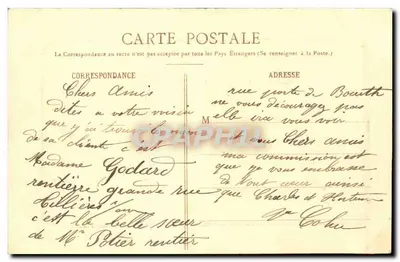 CARTE POSTALE
La Correspondance au recto n'est pas acceptée par tous les Pays Étrangers (Se renseigner à la Poste.)
CORRESPONDANCE
Chers Amis
dites a votre voisin
que j'ai trouvé le nom
de sa cliente c'est
Madame Godard
rentière grande rue
Tillières s/
c'est la belle sœur
de Mr Potier rentier
ADRESSE
rue porte de Bourth
ne vous découragez pas
M elle ira vous voir
vous Chers amis
ma commission est
que je vous embrasse
de tout cœur aussi
que Charles et Hortense